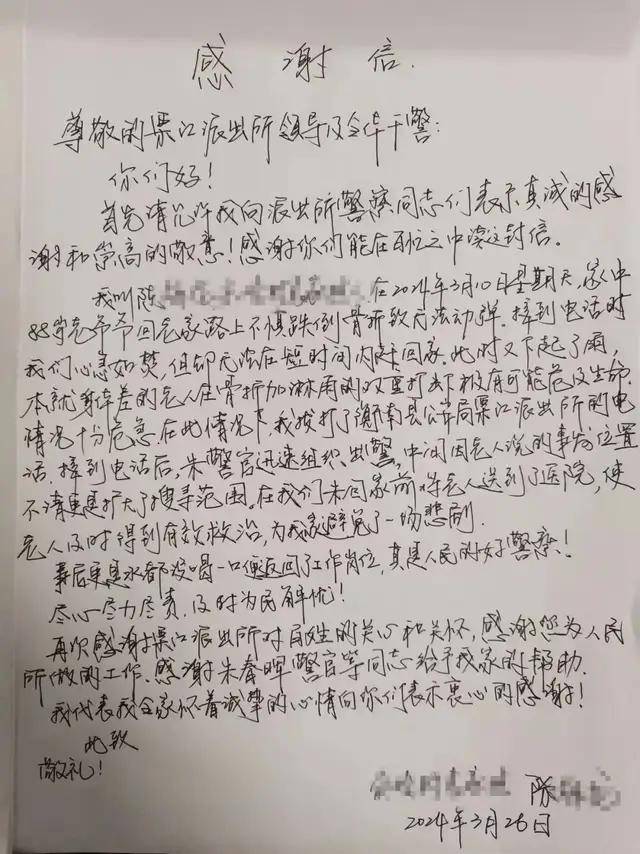 感谢信.
尊敬的渠江派出所领导及全体干警:
你们好!
首先请允许我向派出所警察同志们表示真诚的感
谢和崇高的敬意!感谢你们能在百忙之中读这封信。
我叫陈 在2024年3月10日星期天,家中
88岁老爷爷回老家路上不慎跌倒骨折致无法动弹.接到电话时
我们心急如焚,但却无法在短时间内赶回家.此时又下起了雨,
本就身体差的老人在骨折加淋雨的双重打击下极有可能危及生命.
情况十分危急.在此情况下,我拨打了 南县公安局渠江派出所的电
话.接到电话后,朱警官迅速组织出警,中间因老人说的事发位置
不清更是扩大了搜寻范围.在我们未回家前将老人送到了医院,使
老人及时得到有效救治,为我家避免了一场悲剧.
事后更是水都没喝一口便返回了工作岗位,真是人民的好警察!
尽心尽力尽责,及时为民解忧!
再次感谢渠江派出所对百姓的关心和关怀,感谢您为人民
所做的工作.感谢朱 警官等同志给予我家的帮助.
我代表我全家怀着诚挚的心情向你们表示衷心的感谢!
此致
敬礼!
陈
2024年3月26日